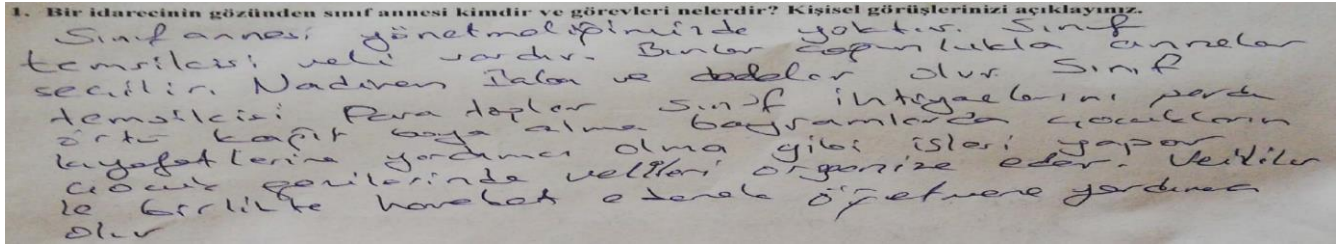 1. Bir idarecinin gözünden sınıf annesi kimdir ve görevleri nelerdir? Kişisel görüşlerinizi açıklayınız.
Sınıf annesi yönetmeliğimizde yoktur. Sınıf
temsilcisi veli vardır. Bunlar çoğunlukla anneler
seçilir. Nadiren Baba ve dedeler olur Sınıf
temsilcisi Para toplar sınıf ihtiyaçlarını perde
örtü kağıt boya alma bayramlarda çocukların
kıyafetlerine yardımcı olma gibi işleri yapar
çocuk gezilerinde velileri organize eder. Veliler
le birlikte hareket ederek öğretmene yardımcı
olur